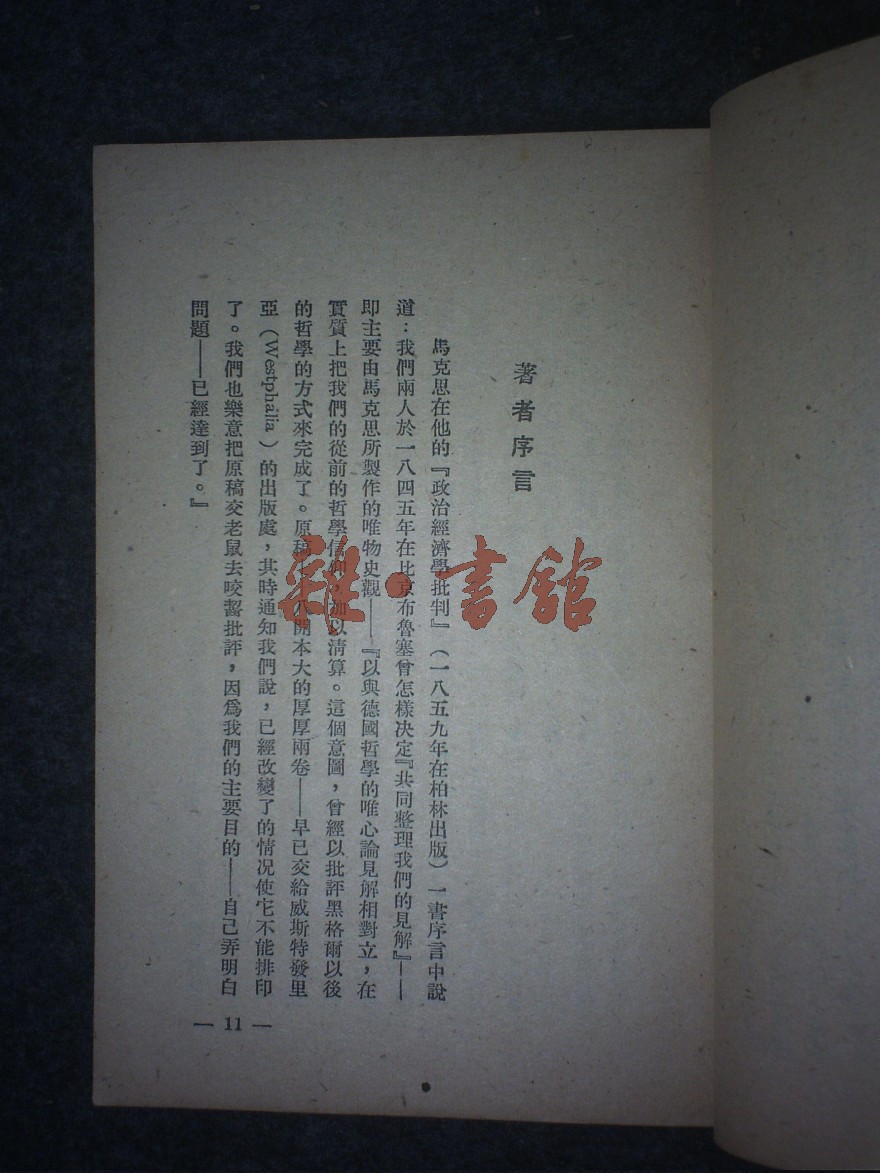 著者序言
馬克思在他的『政治經濟學批判』（一八五九年在柏林出版）一書序言中說
道：我們兩人於一八四五年在比京布魯塞曾怎樣決定『共同整理我們的見解』——
即主要由馬克思所製作的唯物史觀——『以與德國哲學的唯心論見解相對立，在
實質上把我們的從前的哲學信仰，加以清算。這個意圖，曾經以批評黑格爾以後
的哲學的方式來完成了。原稿——八開本大的厚厚兩卷——早已交給威斯特發里
亞（Westphalia）的出版處，其時通知我們說，已經改變了的情況使它不能排印
了。我們也樂意把原稿交老鼠去咬齧批評，因爲我們的主要目的——自己弄明白
問題——已經達到了。』
— 11 —
雜·書館